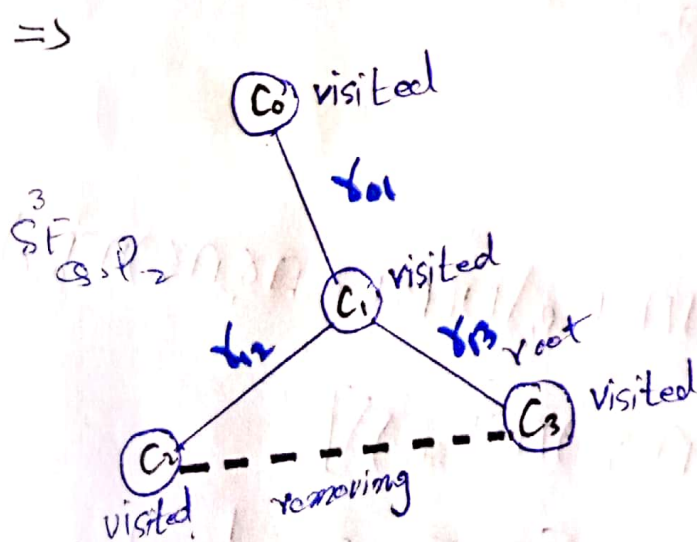 =>
C₀ visited
γ₀₁
C₁ visited
γ₁₂
γ₁₃
root
C₂ visited
C₃ visited
removing